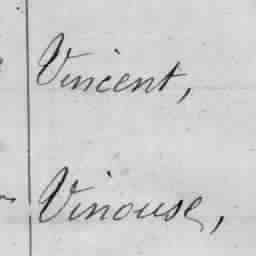 Vincent,
Vinouse,